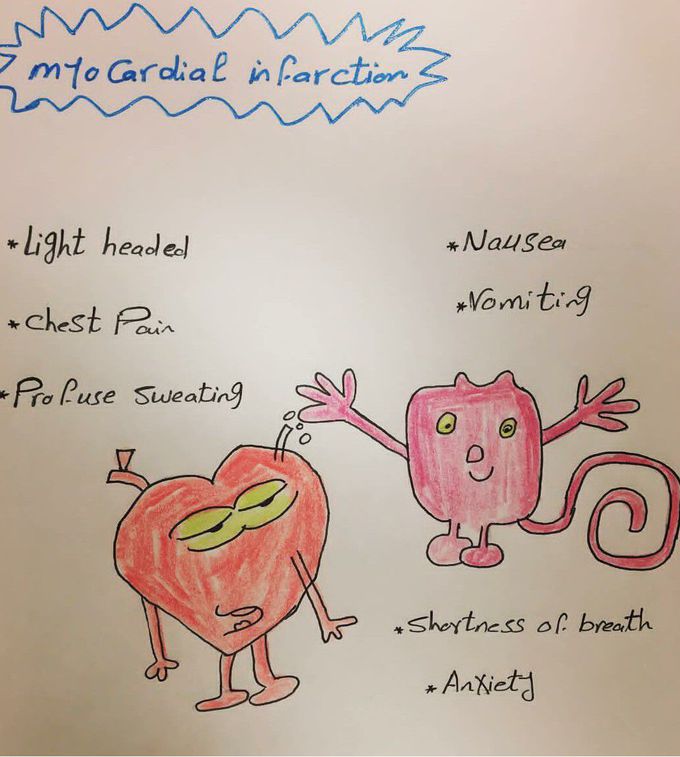 myocardial infarction
*Light headed
*chest Pain
*Profuse sweating
*Nausea
*Vomiting
*Shortness of breath
*Anxiety